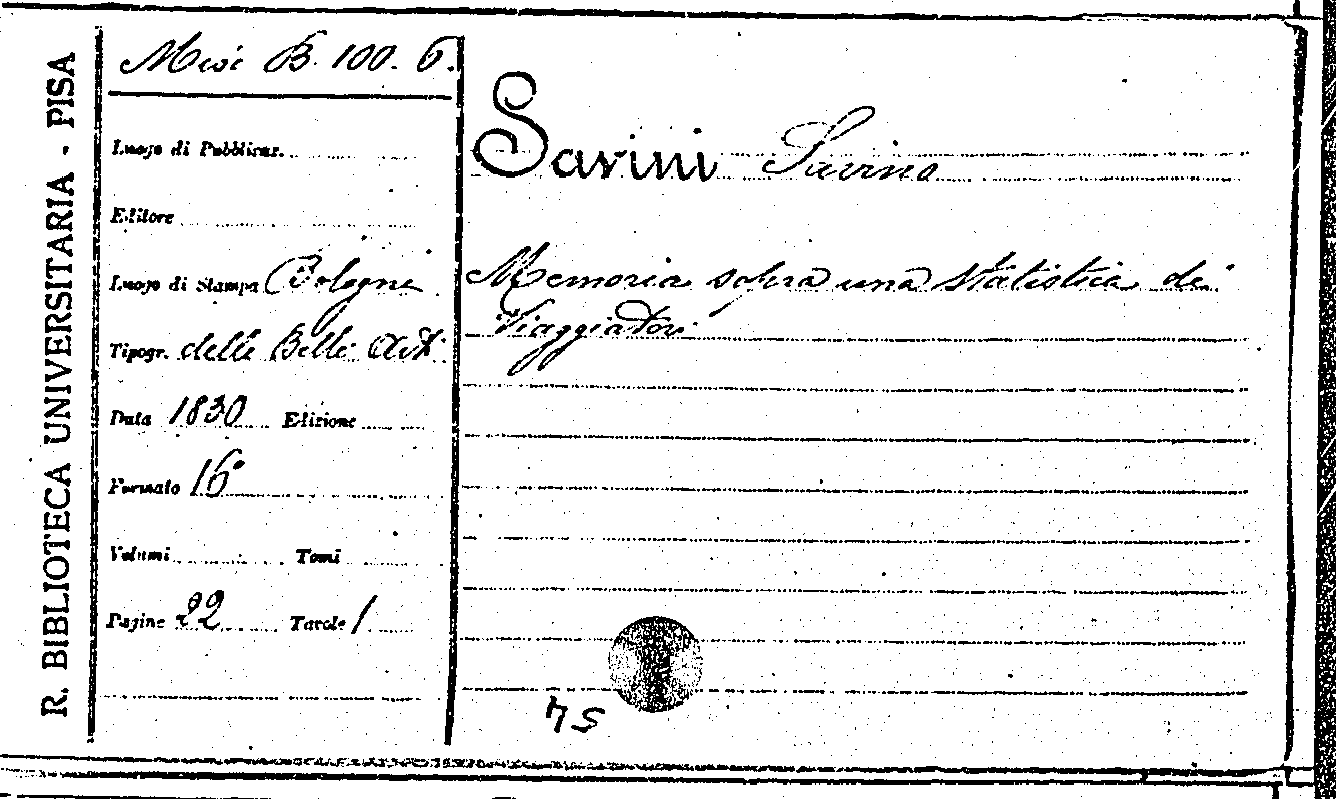 R. BIBLIOTECA UNIVERSITARIA - PISA
Misc B. 100. 6.
Luogo di Pubblicaz.
Editore
Luogo di Stampa Bologna
Tipogr. delle Belle Arti
Data 1830 Edizione
Formato 16°
Volumi Tomi
Pagine 22 Tavole 1
Savini Savino
Memoria sopra una statistica dei
Viaggiatori